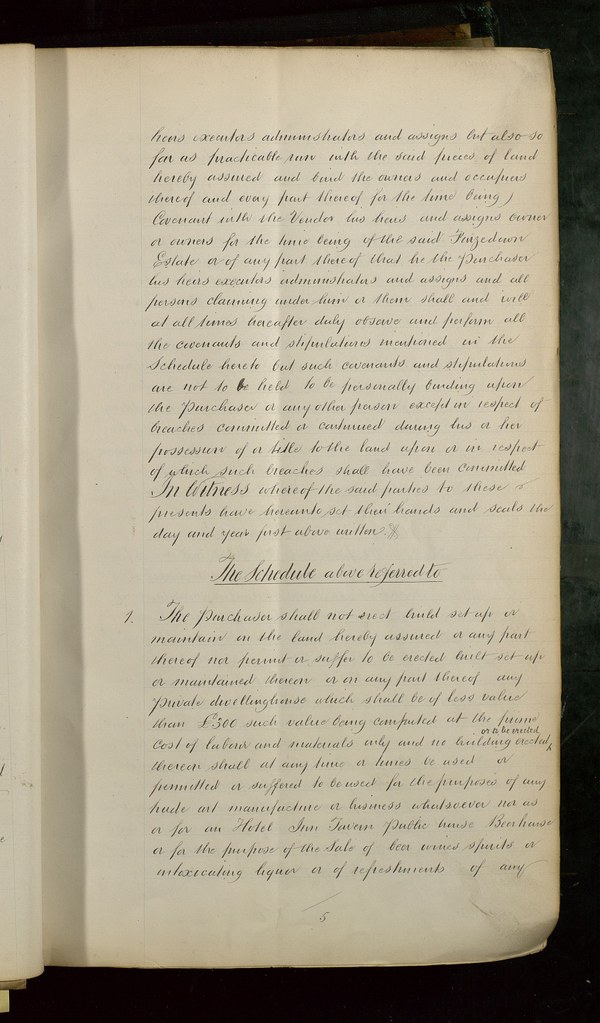 heirs executors administrators and assigns but also so
far as practicable run with the said pieces of land
hereby assured and bind the owners and occupiers
thereof and every part thereof for the time being)
Covenant with the Vendor his heirs and assigns owner
or owners for the time being of the said Furzedown
Estate or of any part thereof that he the Purchaser
his heirs executors administrators and assigns and all
persons claiming under him or them shall and will
at all times hereafter duly observe and perform all
the covenants and stipulations mentioned in the
Schedule hereto but such covenants and stipulations
are not to be held to be personally binding upon
the Purchaser or any other person except in respect of
breaches committed or continued during his or her
possession of or title to the land upon or in respect
of which such breaches shall have been committed
In Witness whereof the said parties to these
presents have hereunto set their hands and seals the
day and year first above written
The Schedule above referred to
1. The Purchaser shall not erect build set up or
maintain on the land hereby assured or any part
thereof nor permit or suffer to be erected built set up
or maintained thereon or on any part thereof any
private dwellinghouse which shall be of less value
than £300 such value being computed at the prime
or to be erected
cost of labour and materials only and no building erected
thereon shall at any time or times be used or
permitted or suffered to be used for the purposes of any
trade art manufacture or business whatsoever nor as
or for an Hotel Inn Tavern Public house Beerhouse
or for the purpose of the Sale of beer wines spirits or
intoxicating liquor or of refreshments of any
5